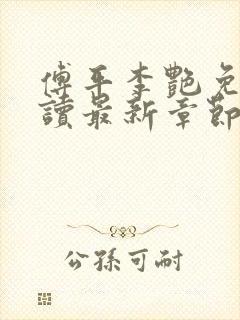 傅平李艷免
讀最新章節
公孫可耐